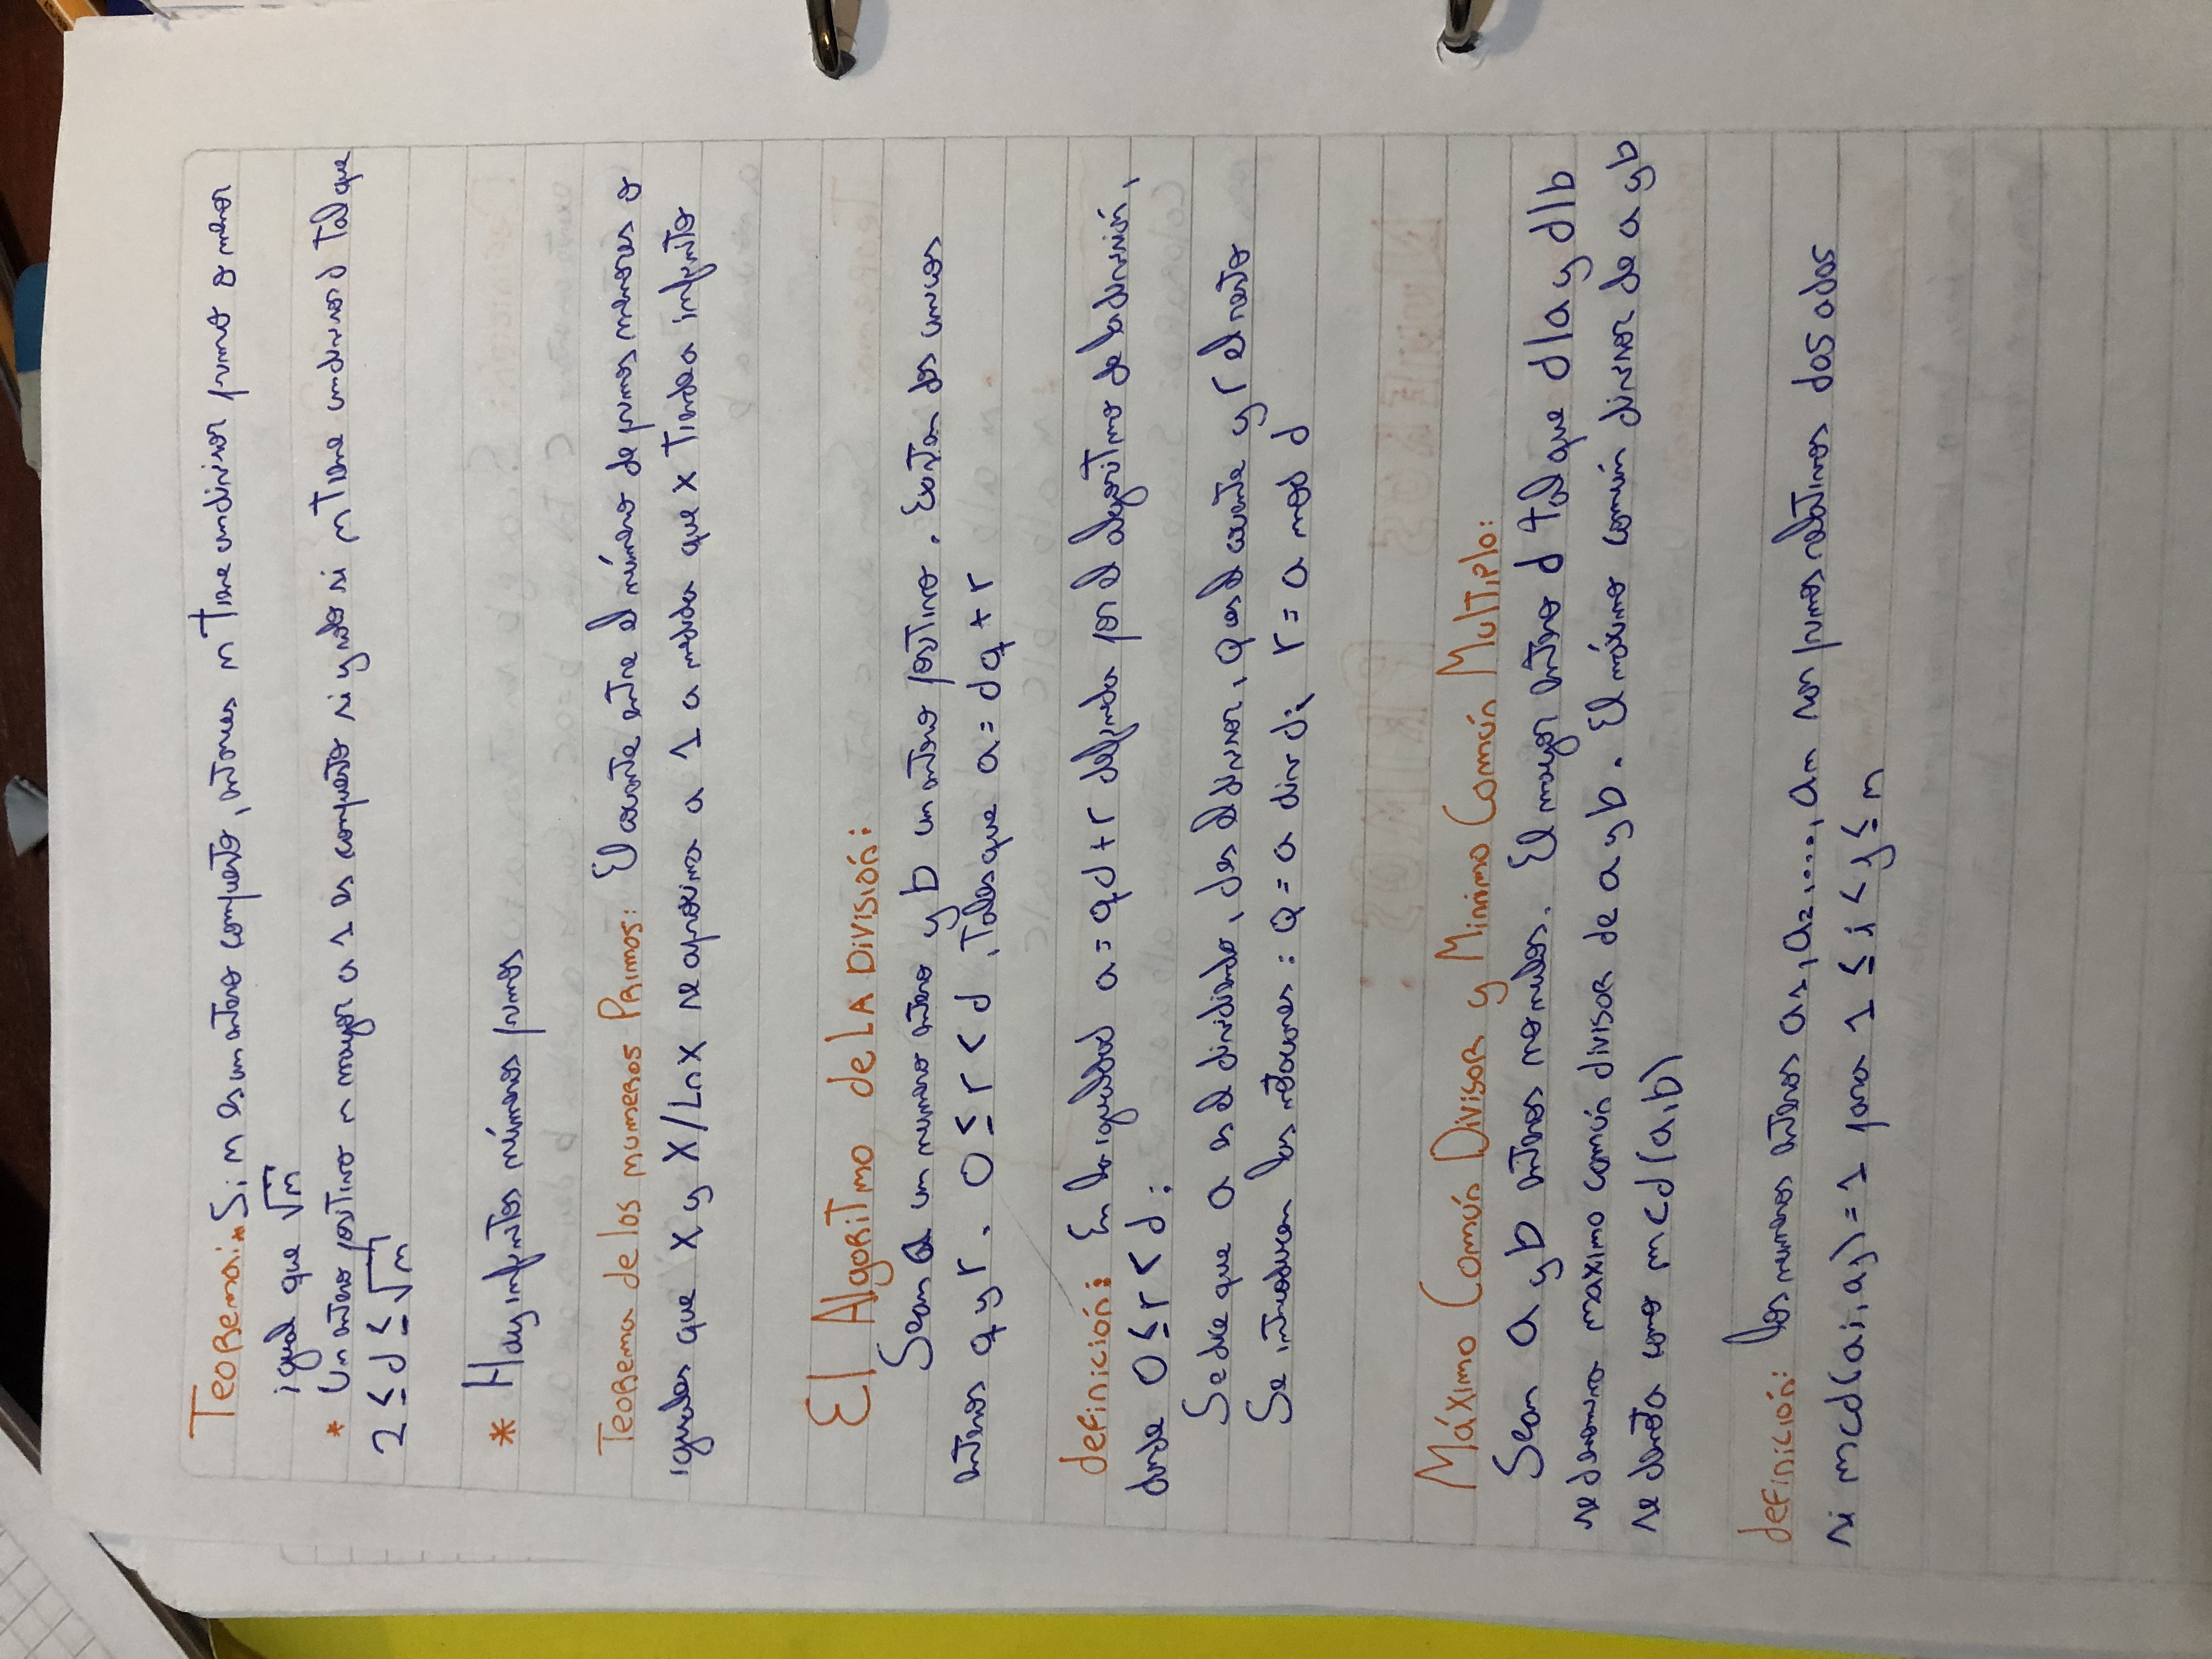 Teorema: * Si n es un entero compuesto, entonces n tiene un divisor primo o menor
igual que √n
* Un entero positivo n mayor a 1 es compuesto si y solo si n tiene un divisor d tal que
2 ≤ d ≤ √n
* Hay infinitos números primos
Teorema de los numeros Primos: El cociente entre el número de primos menores o
iguales que x y x/Ln x se aproxima a 1 a medida que x tiende a infinito
El Algoritmo de LA División:
Sean a un numero entero y b un entero positivo. Existen dos unicos
enteros q y r. 0 ≤ r < d, Tales que a = dq + r
definición: En la igualdad a = qd + r definida por el algoritmo de la división,
donde 0 ≤ r < d:
Se dice que a es el dividiendo, d es el divisor, q es el cociente y r el resto
Se introducen las notaciones: Q = a div d; r = a mod d
Máximo Común Divisor y Minimo Común Multiplo:
Sean a y b enteros no nulos. El mayor entero d tal que d|a y d|b
se denomina maximo común divisor de a y b. El máximo común divisor de a y b
se denota como mcd(a,b)
definición: los numeros enteros a1, a2, ...., an son primos relativos dos a dos
si mcd(ai, aj) = 1 para 1 ≤ i < j ≤ n